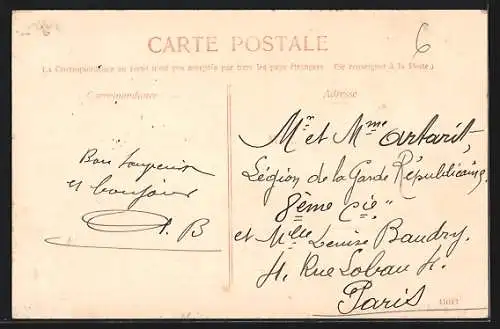 6
CARTE POSTALE
La Correspondance au verso n'est pas acceptée par tous les pays étrangers. (Se renseigner à la Poste.)
Correspondance
Adresse
Bon
et bonjour
A. B
Mr et Mme Artarit,
Légion de la Garde Républicaine.
8ème Cie "
et Mlle Denise Baudry.
4, Rue Lobau 4.
Paris